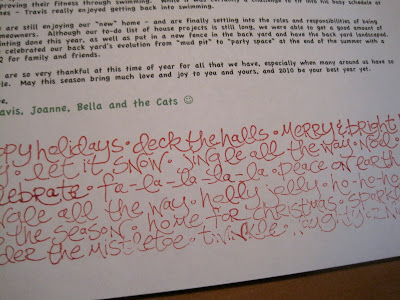 proving their fitness through swimming. While it was certainly a challenge to fit into his busy schedule at
- Travis really enjoyed getting back into swimming.
are still enjoying our "new" home - and are finally settling into the roles and responsibilities of being
meowners. Although our to-do list of house projects is still long, we were able to get a good amount of
nting done this year, as well as put in a new fence in the back yard and have the back yard landscaped.
celebrated our back yard's evolution from "mud pit" to "party space" at the end of the summer with a
Q for family and friends.
are so very thankful at this time of year for all that we have, especially when many around us have so
le. May this season bring much love and joy to you and yours, and 2010 be your best year yet.
ve,
avis, Joanne, Bella and the Cats ☺
ppy holidays · deck the halls · merry & bright
y · let it snow · jingle all the way · noel
elebrate · fa-la-la-la-la · peace on earth
ngle all the way · holly jolly · ho-ho-ho
s the season · home for christmas · sparkl
der the mistletoe · twinkle · naughty & ni